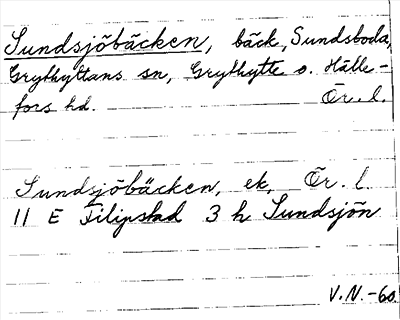 Sundsjöbäcken, bäck, Sundsboda,
Grythyttans sn, Grythytte o. Hälle-
fors hd. Ör. l.
Sundsjöbäcken, ek, Ör. l.
11 E Filipstad 3 h Sundsjön
V.N.-60.